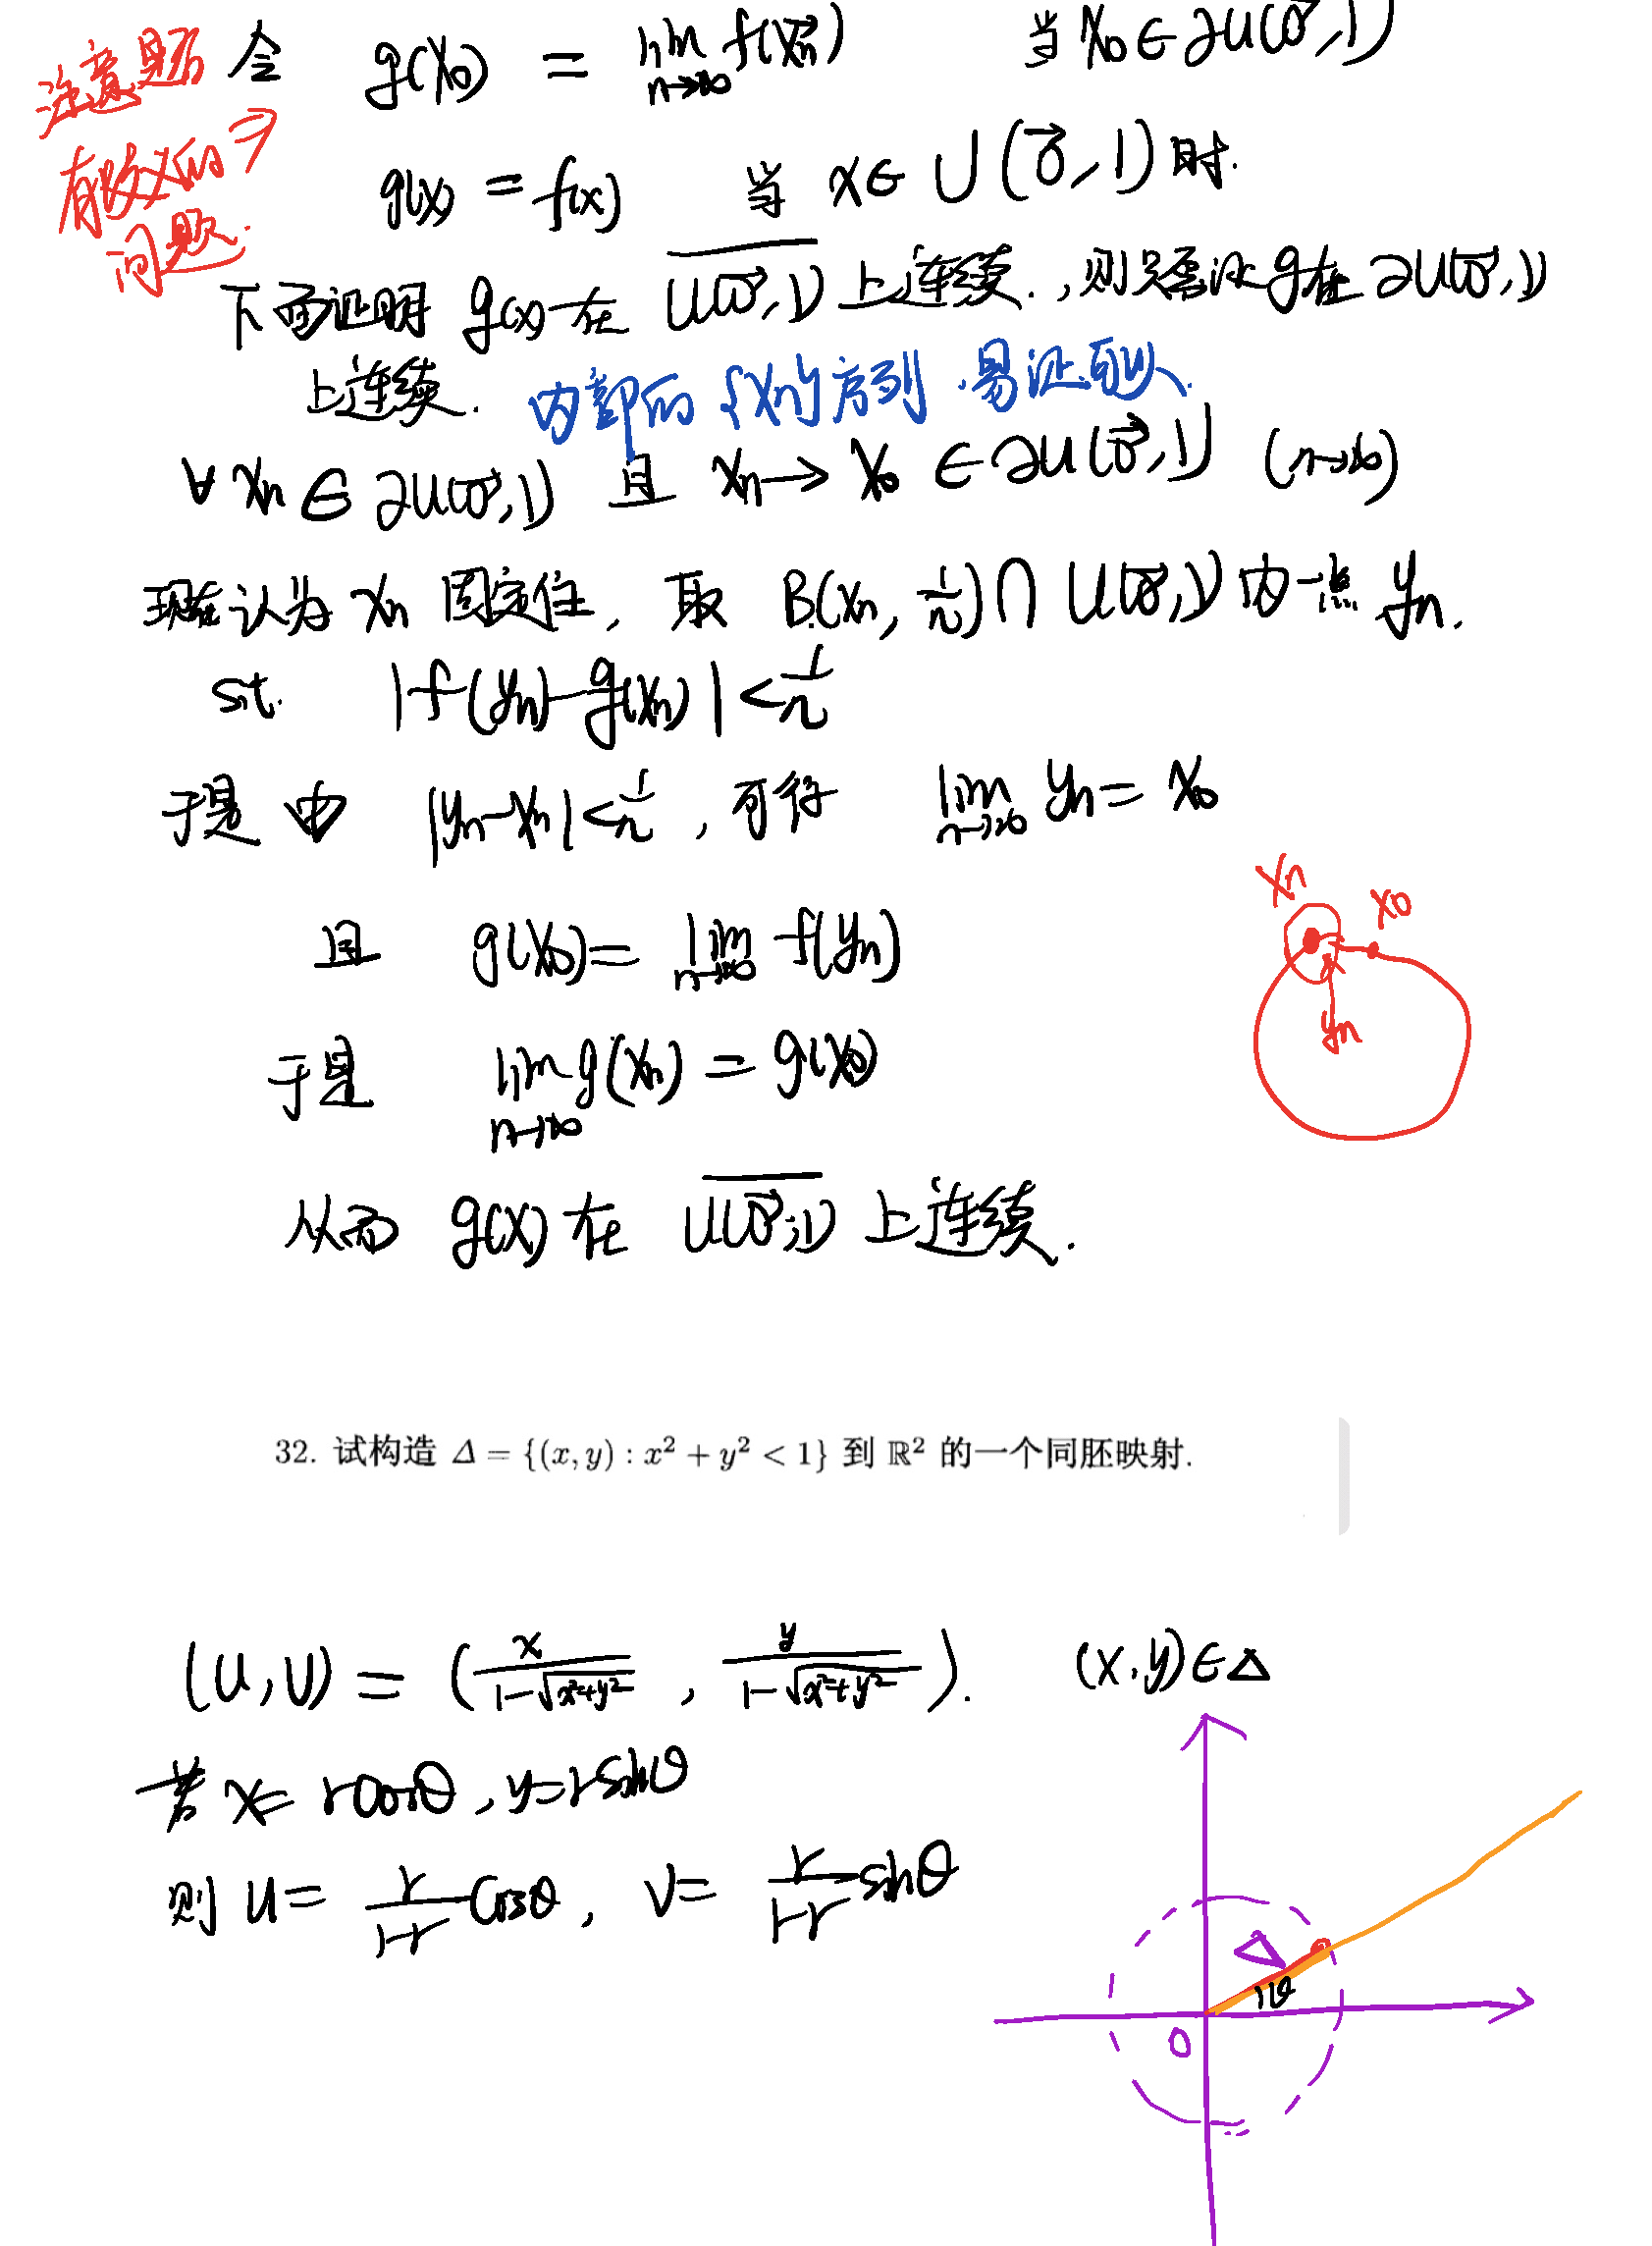 注意是否 令 g(x₀) = lim_{n→∞} f(x⃗ₙ) 当 x₀ ∈ ∂U(0⃗,1)
有歧义的 ⇒ g(x) = f(x) 当 x ∈ U(0⃗,1) 时.
问题.
下面证明 g(x) 在 \overline{U(0⃗,1)} 上连续., 则只需证 g 在 ∂U(0⃗,1)
上连续. 内部的 {xₙ} 序列 易证.
∀ xₙ ∈ ∂U(0⃗,1) 且 xₙ → x₀ ∈ ∂U(0⃗,1) (n→∞)
现在认为 xₙ 固定住, 取 B(xₙ, 1/n) ∩ U(0⃗,1) 内一点 yₙ.
st. |f(yₙ) − g(xₙ)| < 1/n
于是 由 |yₙ − xₙ| < 1/n, 可得 lim_{n→∞} yₙ = x₀
xₙ x₀
且 g(x₀) = lim_{n→∞} f(yₙ)
yₙ
于是 lim_{n→∞} g(xₙ) = g(x₀)
从而 g(x) 在 \overline{U(0⃗,1)} 上连续.
32. 试构造 Δ = {(x, y) : x² + y² < 1} 到 ℝ² 的一个同胚映射.
(u, v) = (x/(1−√(x²+y²)), y/(1−√(x²+y²))). (x, y) ∈ Δ
若 x = r cosθ, y = r sinθ
则 u = r/(1−r) cosθ, v = r/(1−r) sinθ
Δ
θ
0